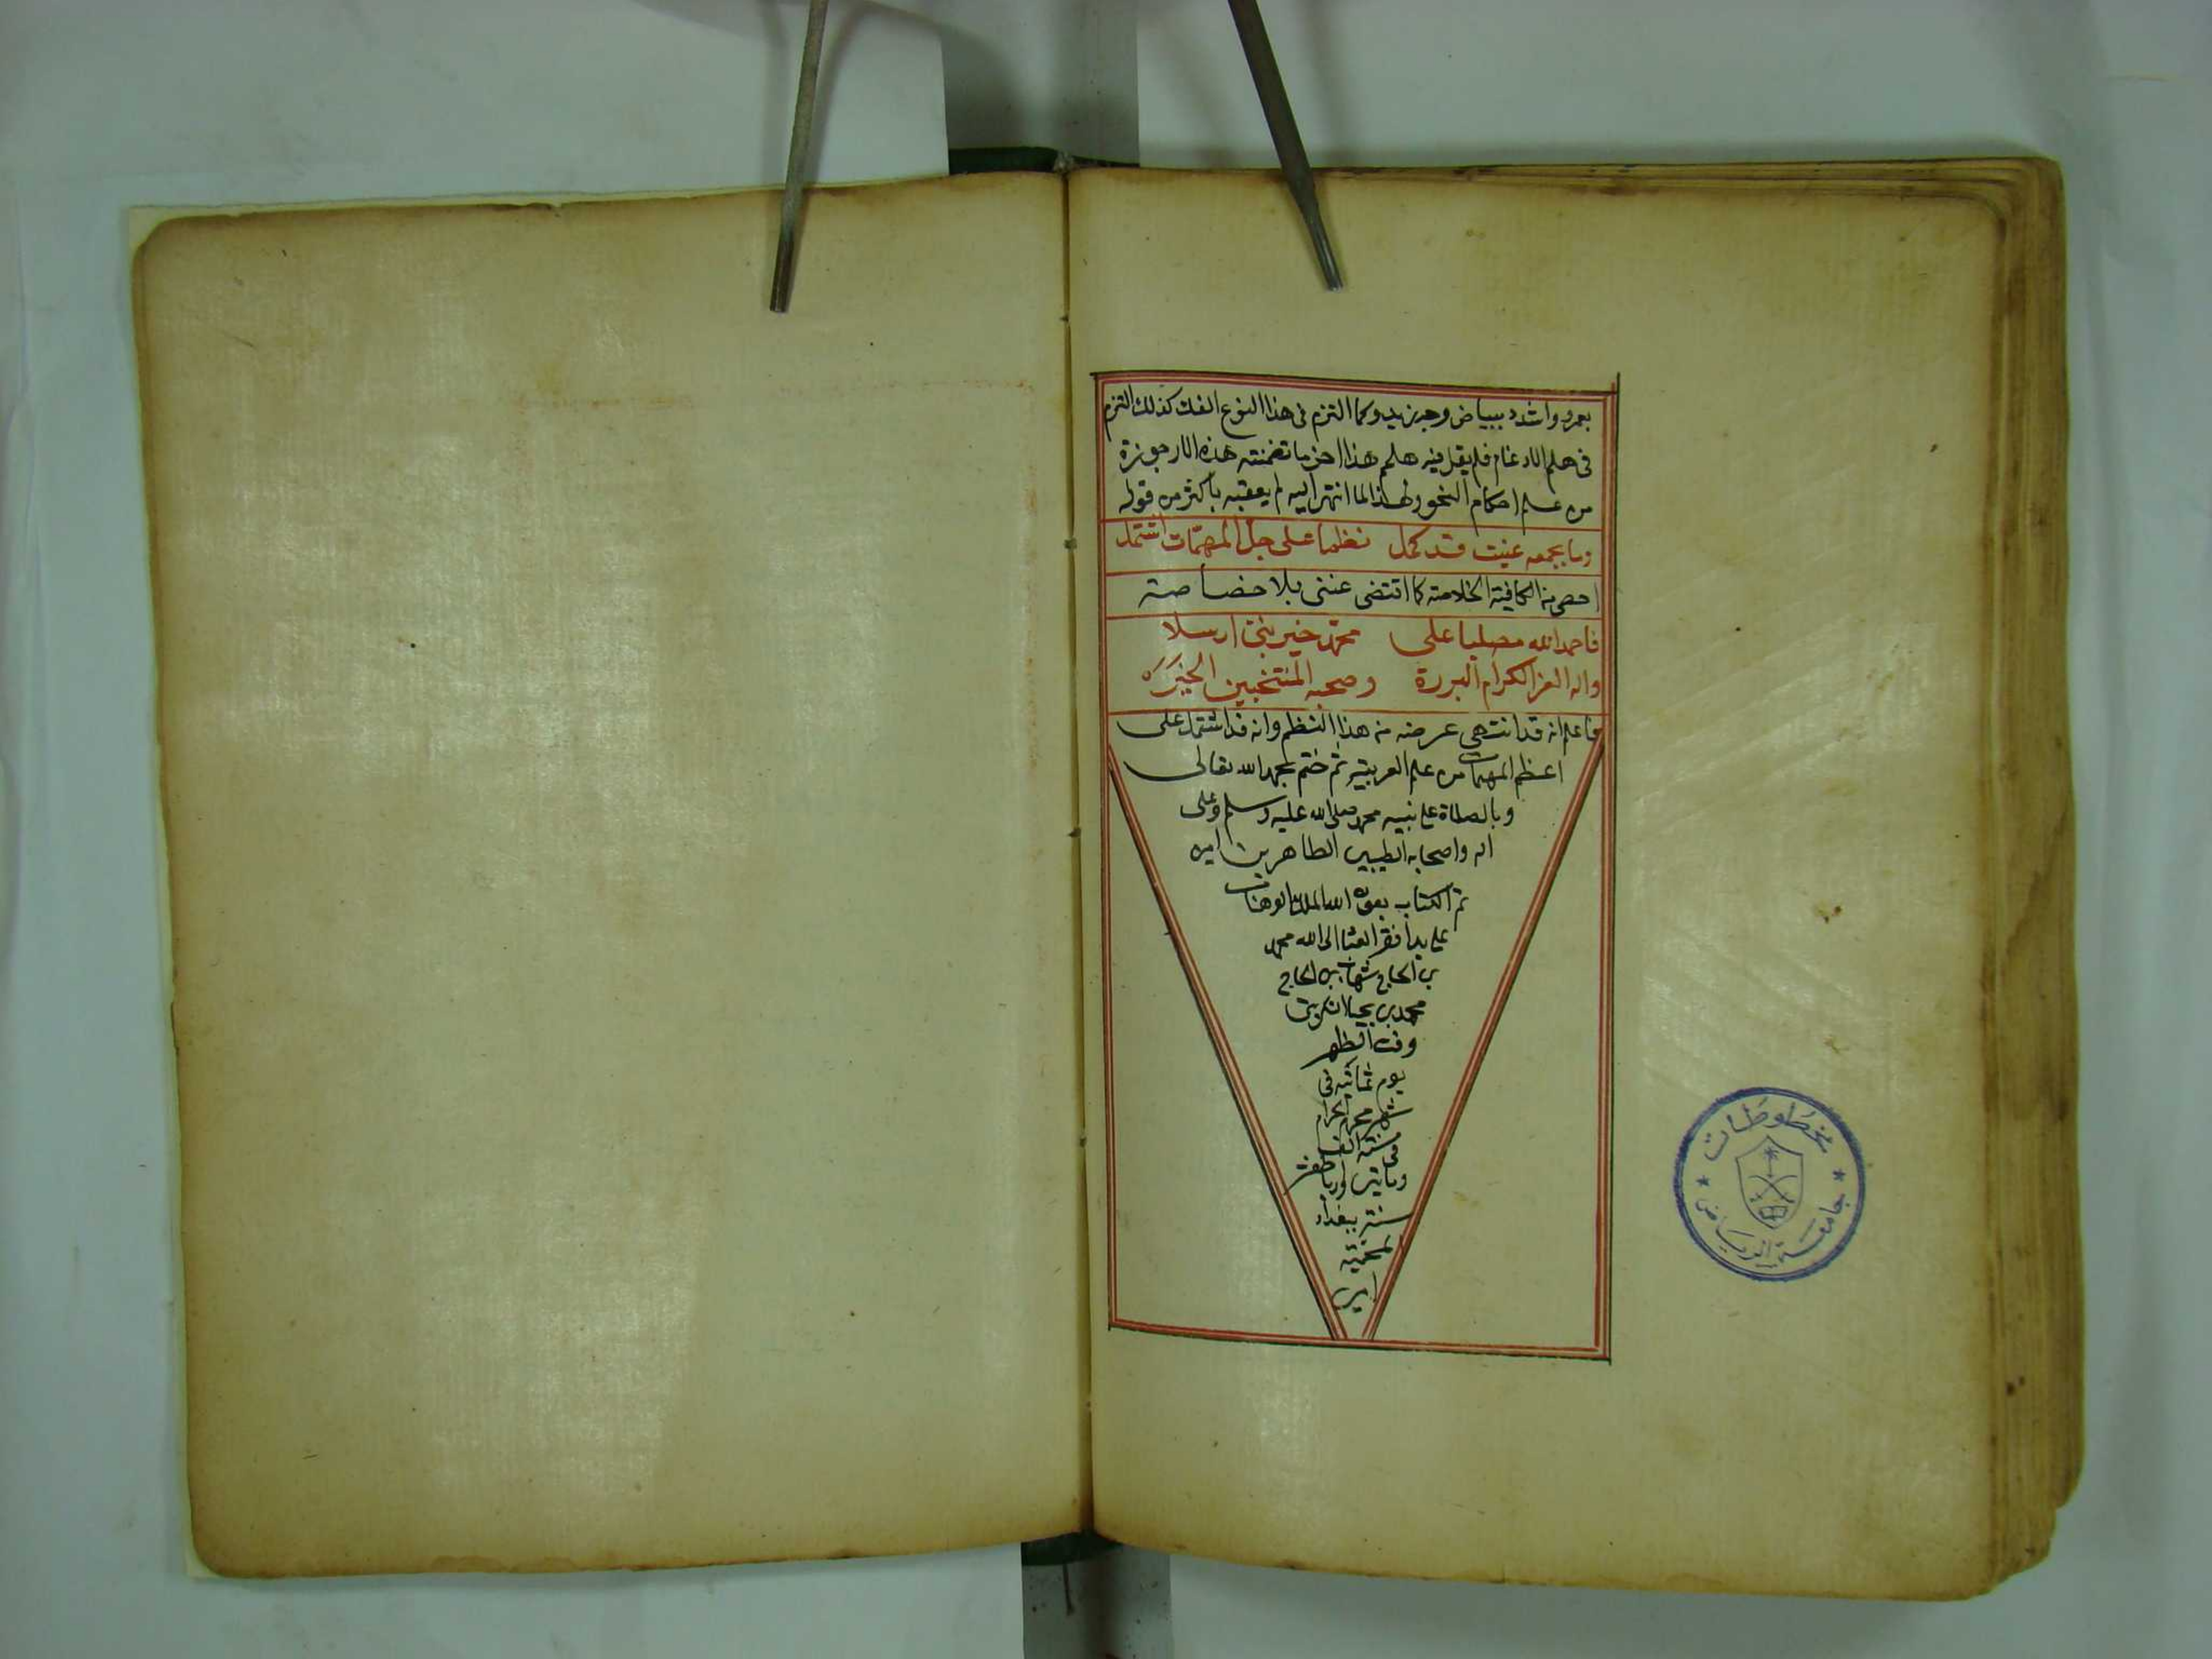 بعمرو واشدد ببياض وجه زيد وكما التزم في هذا النوع الفك كذلك التزم
في هلم الادغام فلم يقل فيه هلمم هذا اخر ما تضمنته هذه الارجوزة
من علم احكام النحو ولهذا لما انتهى اليه لم يعقبه باكثر من قوله
وما بجمعه عنيت قد كمل نظما على جل المهمات اشتمل
احصى من الكافية الخلاصة كما اقتضى غنى بلا خصاصة
فاحمد الله مصليا على محمد خير نبي ارسلا
واله الغر الكرام البررة وصحبه المنتخبين الخيره
فاعلم انه قد انتهى غرضه من هذا النظم وانه قد اشتمل على
اعظم المهمات من علم العربية ثم ختم بحمد الله تعالى
وبالصلاة على نبيه محمد صلى الله عليه وسلم وعلى
اله واصحابه الطيبين الطاهرين امين
تم الكتاب بعون الله الملك الوهاب
على يد افقر الى الله محمد
بن الحاج شهاب بن الحاج
محمد بن يحيى
وقت الظهر
يوم في
شهر محرم الحرام
في سنة الف
وماتين
سنة ببغداد
المحمية
امين
مخطوطات
جامعة الرياض